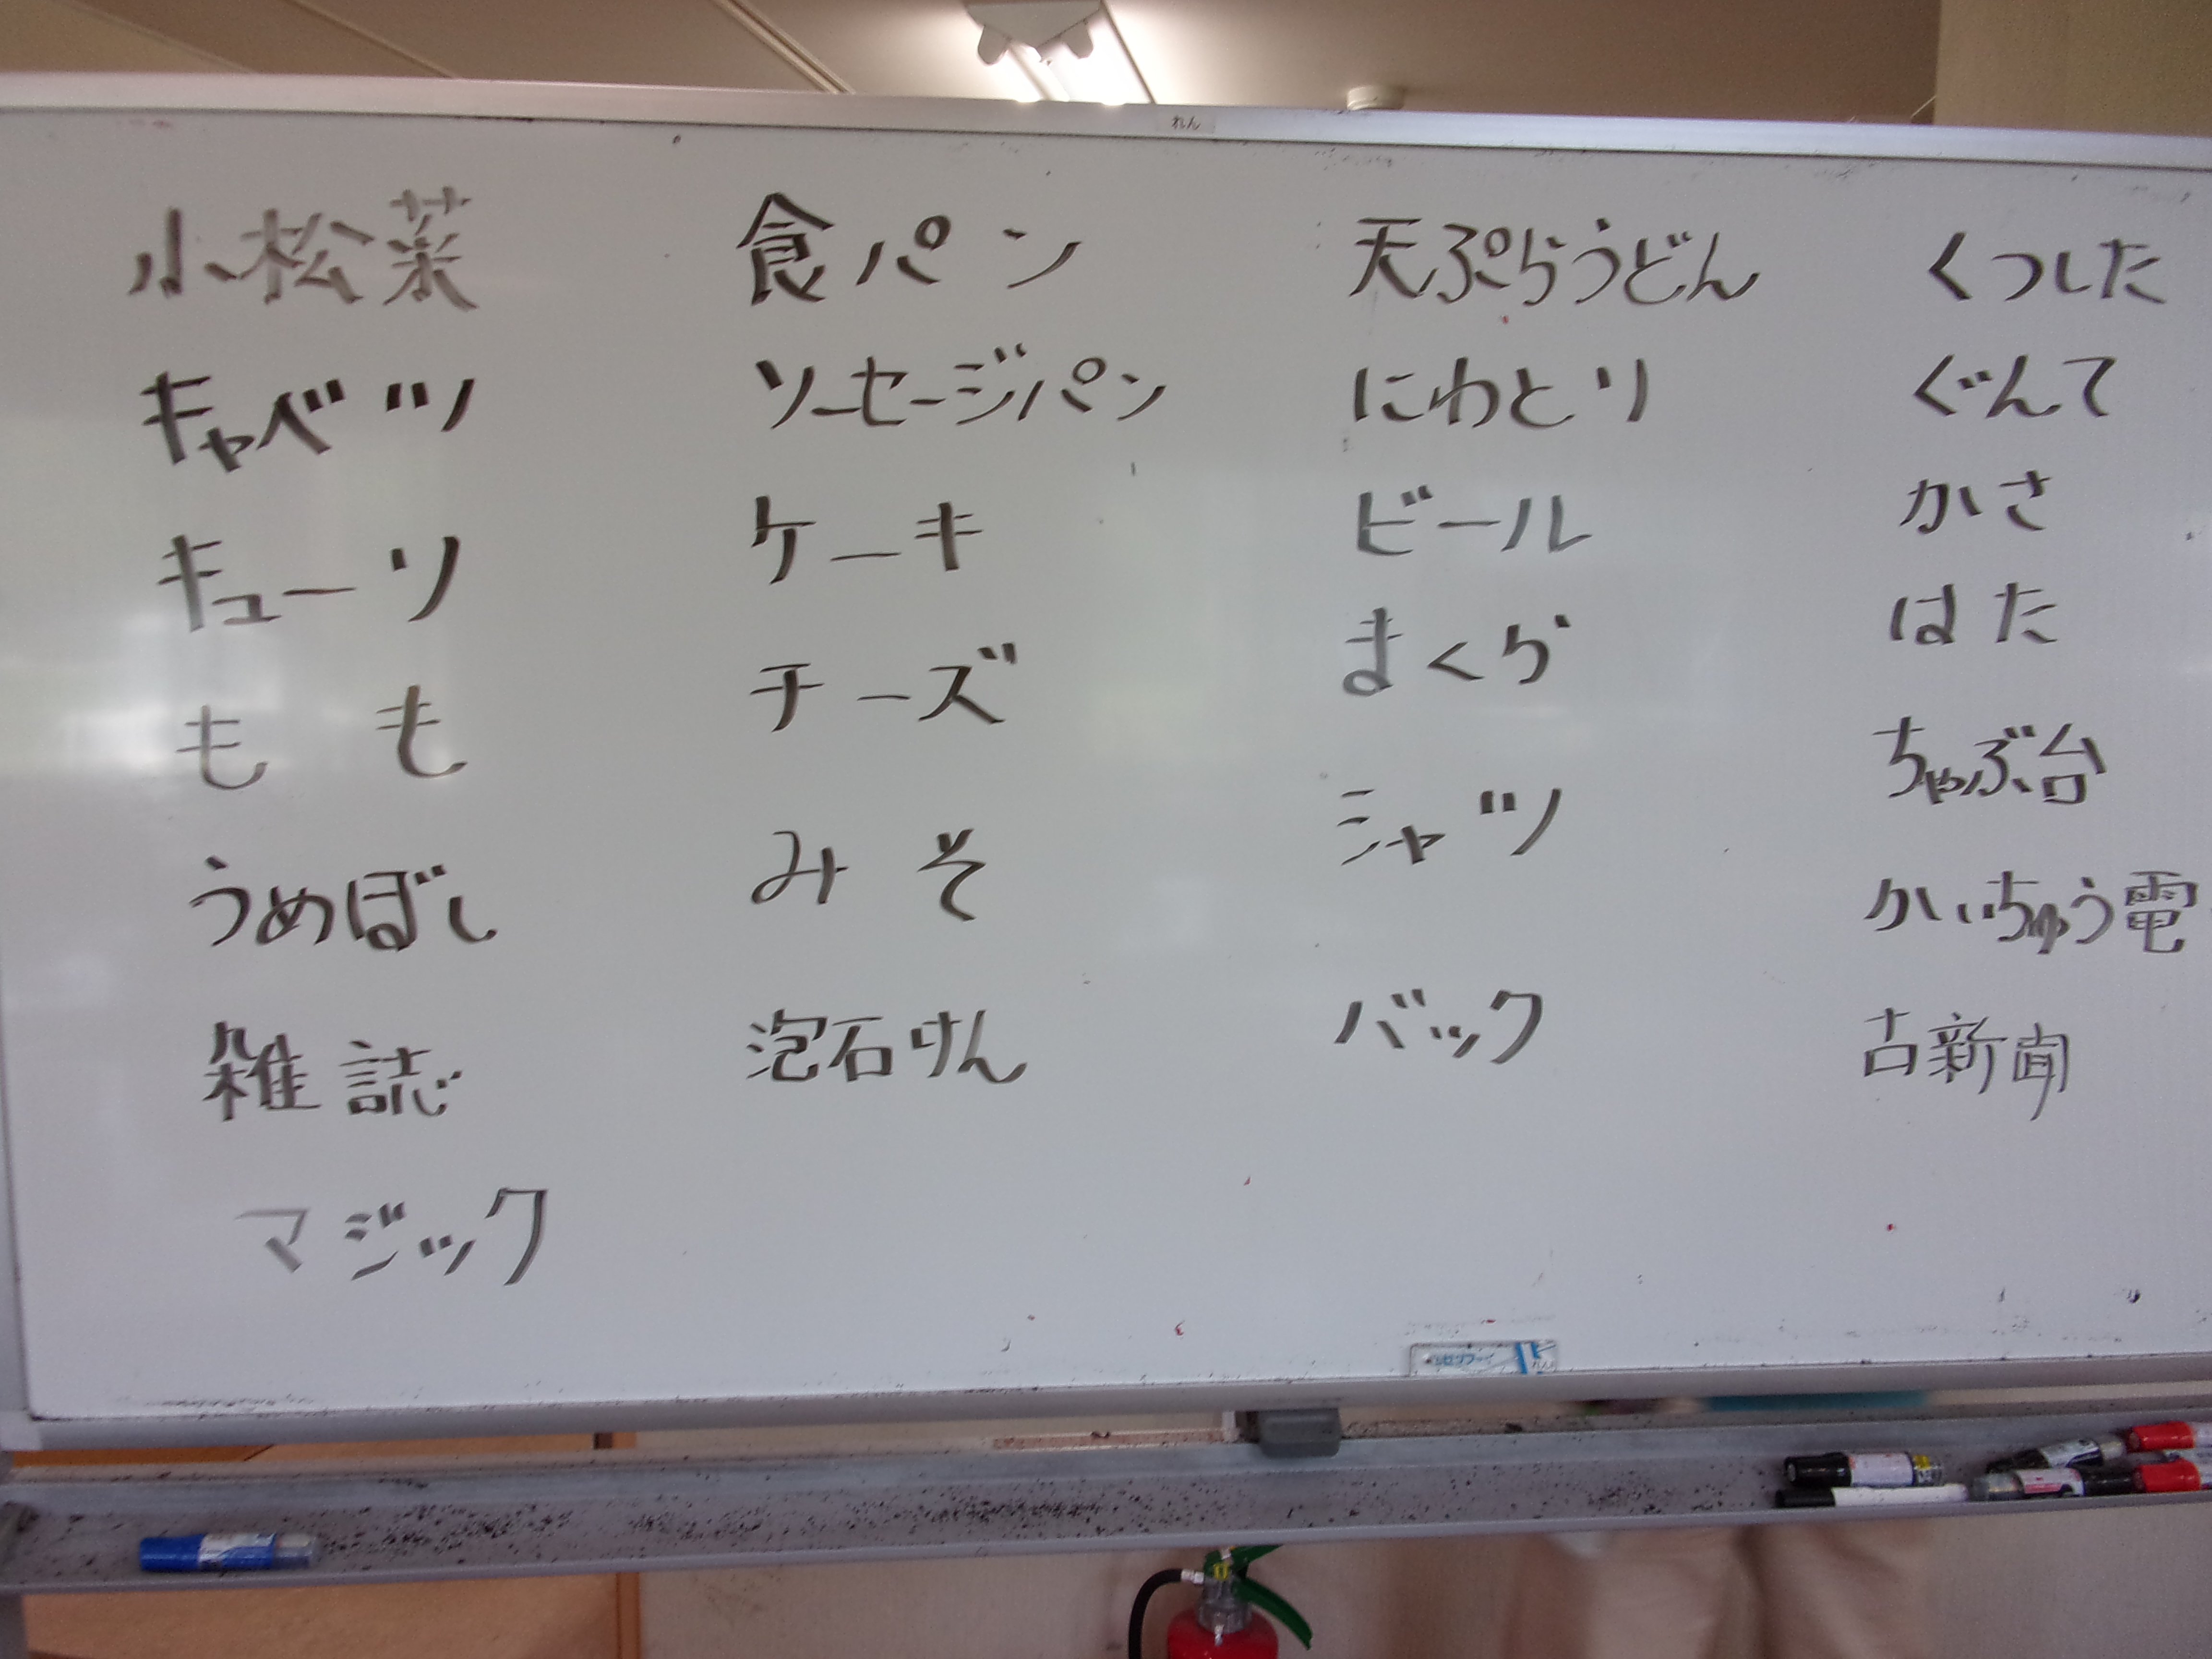 れん
小松菜
キャベツ
キューリ
もも
うめぼし
雑誌
マジック
食パン
ソーセージパン
ケーキ
チーズ
みそ
泡石けん
天ぷらうどん
にわとり
ビール
まくら
シャツ
バック
くつした
ぐんて
かさ
はた
ちゃぶ台
かいちゅう電
古新聞